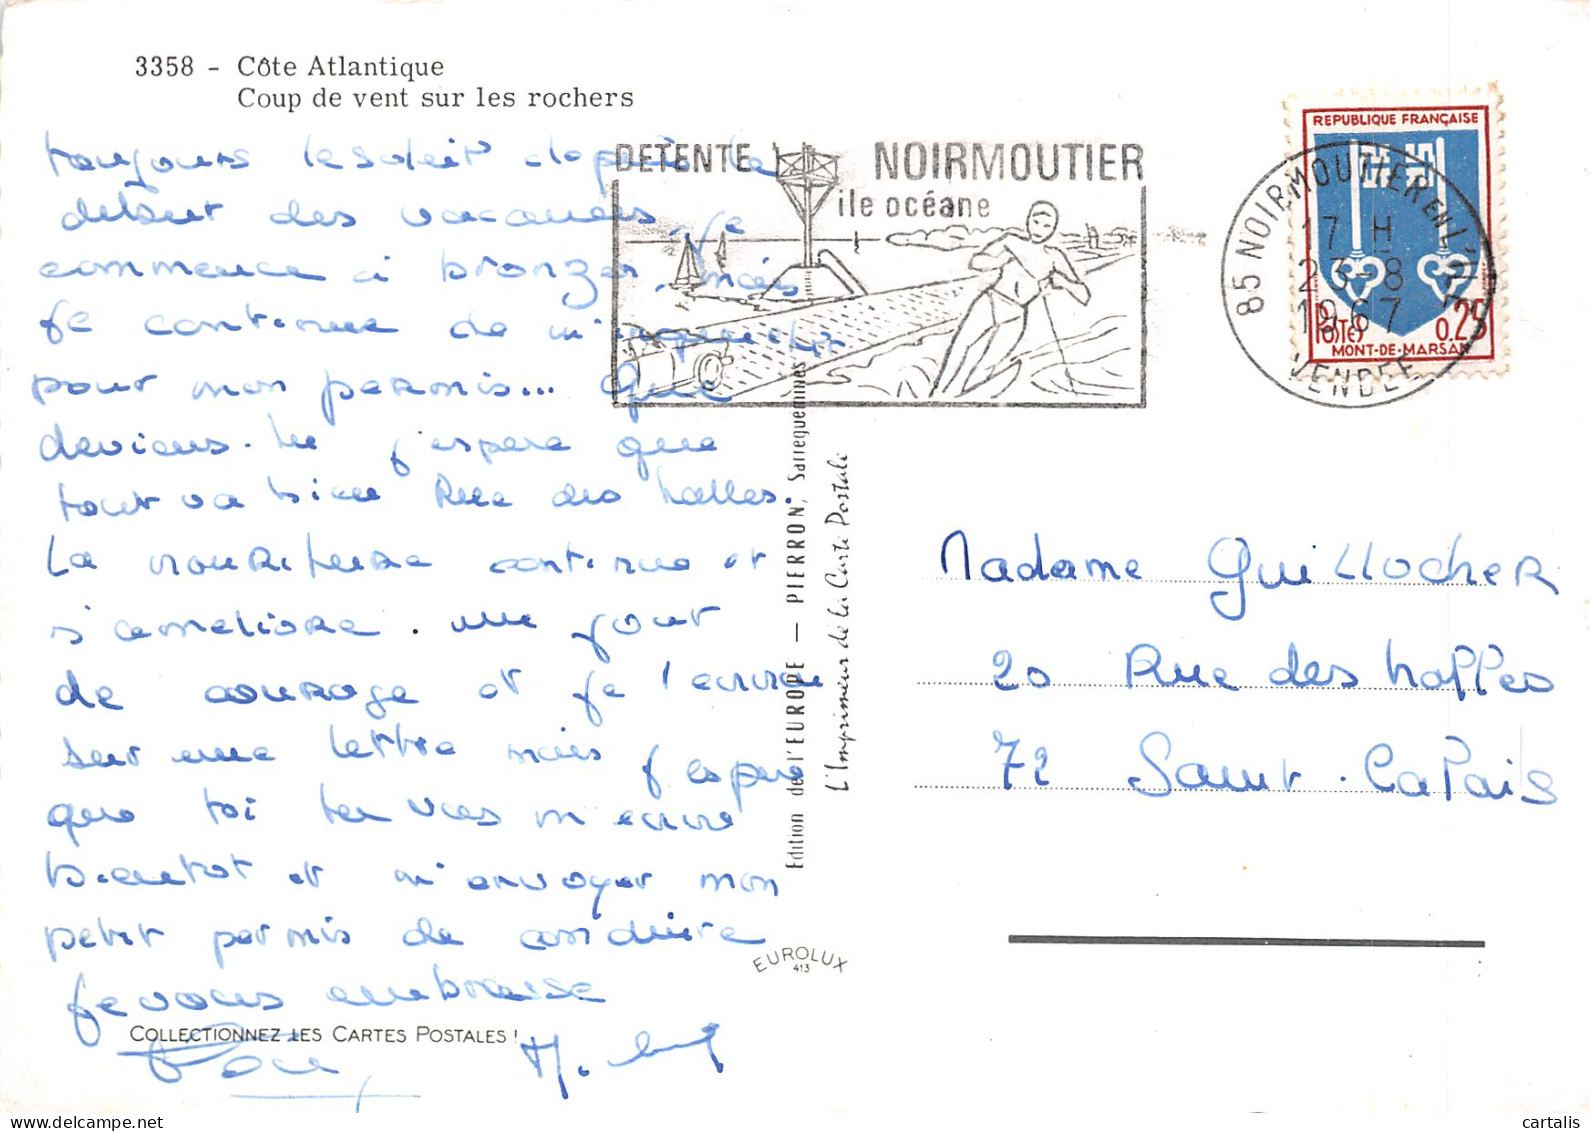 3358 - Côte Atlantique
Coup de vent sur les rochers
toujours le soleil depuis le
debut des vacances, je
commence a bronzer, mais
je continue de m'inquieter
pour mon permis... Que
deviens-tu j'espere que
tout va bien Rue des halles.
La nourriture continue et
s'ameliore. un jour
de courage et je t'ecrirai
sur une lettre mais j'espere
que toi tu vas m'ecrire
bientot et m'envoyer mon
petit permis de conduire
je vous embrasse
COLLECTIONNEZ LES CARTES POSTALES !
DETENTE NOIRMOUTIER
île océane
REPUBLIQUE FRANÇAISE
POSTES 0.25
MONT-DE-MARSAN
85 NOIRMOUTIER EN L'ILE
17 H
23-8
1967
VENDEE
Edition de l'EUROPE — PIERRON, Sarreguemines
L'Imprimeur de la Carte Postale
EUROLUX
413
Madame Guillocher
20 Rue des halles
72 Saint-Calais